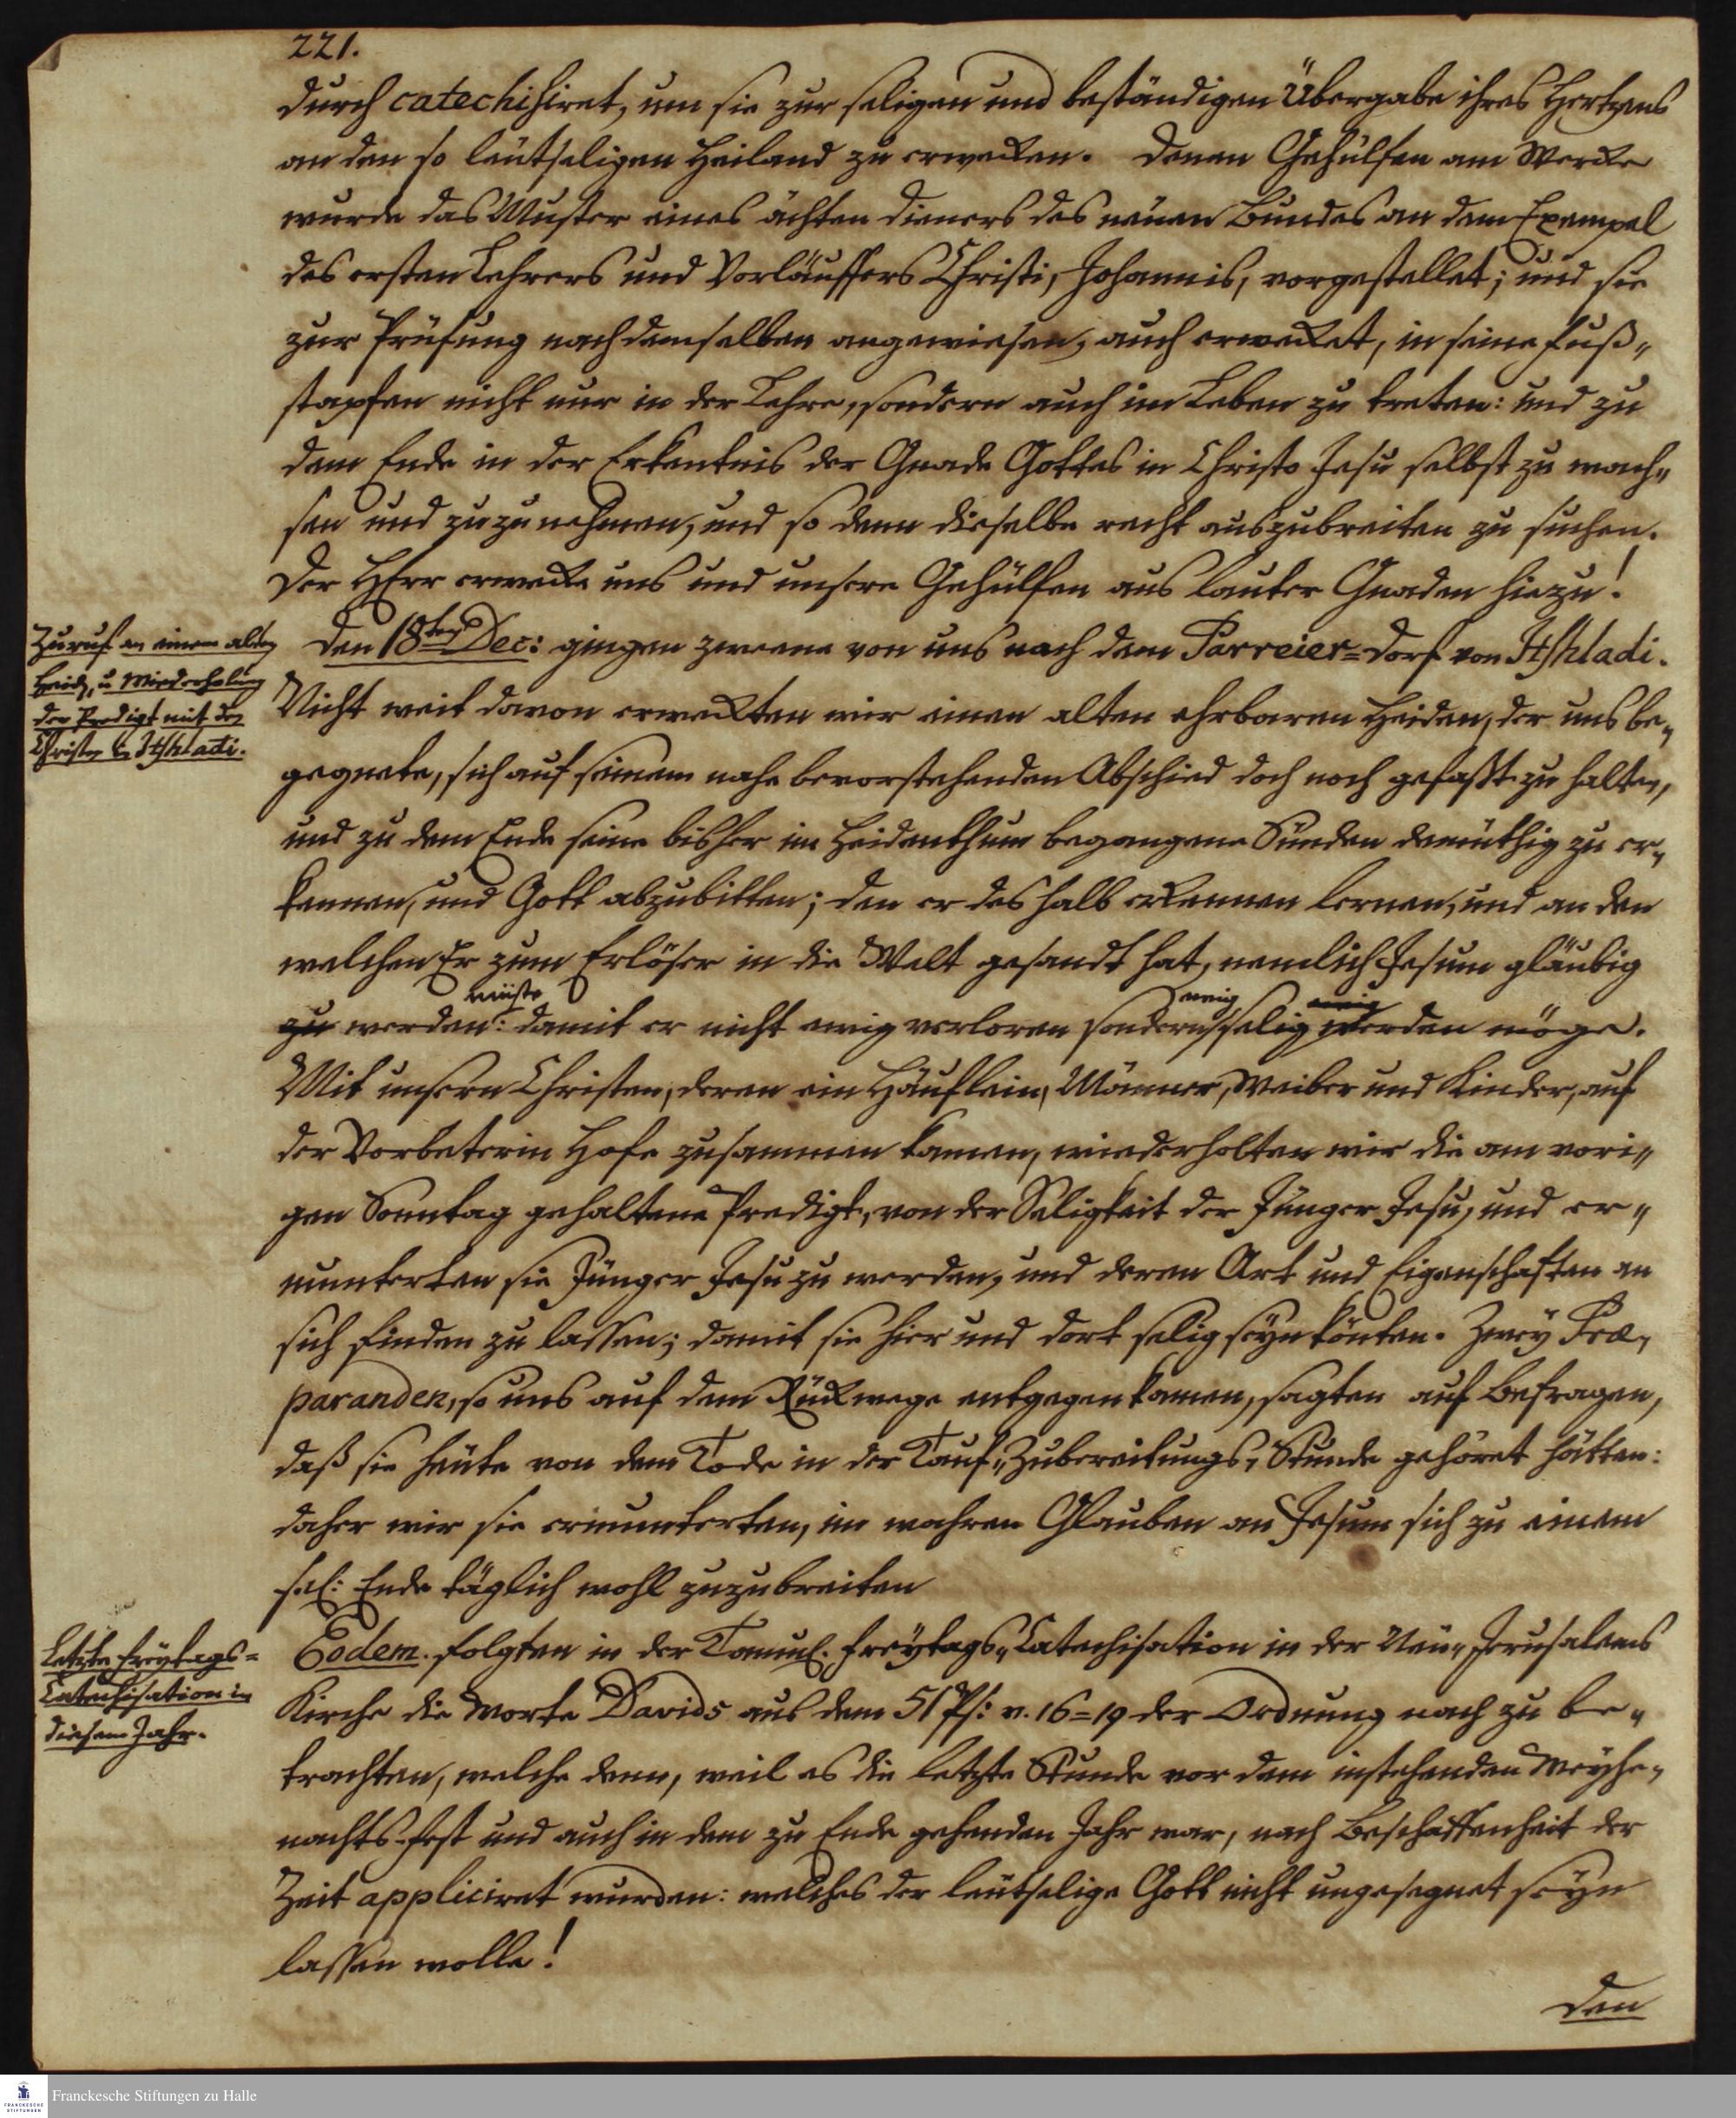 221.
durch catechisiret, um sie zur seligen und beständigen Übergabe ihres Hertzens
an den so leutseligen Heiland zu erwecken. Denen Gehülfen am Wercke
wurde das Muster eines ächten dieners des neuen Bundes an dem Exempel
des ersten Lehrers und Vorläuffers Christi, Johannis, vorgestellet; und sie
zur Prüfung nach demselben angewiesen, auch erwecket, in seine Fuß„
stapfen nicht nur in der Lehre, sondern auch im Leben zu treten: und zu
dem Ende in der Erkentnis der Gnade Gottes in Christo Jesu selbst zu wach„
sen und zuzunehmen, und so denn dieselbe recht auszubreiten zu suchen.
Der HErr erwecke uns und unsere Gehülfen aus lauter Gnaden hiezu!
Zuruf an einen alten
Heid, u. Wiederholung
der Predigt mit den
Christen in Itshladi.
Den 18ten Dec: gingen zweene von uns nach dem Parreier=dorf von Itshladi.
Nicht weit davon erweckten wir einen alten ehrbaren Heiden, der uns be„
gegnete, sich auf seinem nahe bevorstehenden Abschied doch noch gefaßt zu halten,
und zu dem Ende seine bisher im Heidenthum begangene Sünden demüthig zu er„
kennen, und Gott abzubitten; den er deshalb erkennen lernen, und an den
welchen Er zum Erlöser in die Welt gesandt hat, nemlich Jesum gläubig
müste ewig ewig
zu werden: damit er nicht ewig verloren sondern selig werden möge.
Mit unsern Christen, deren ein Häuflein, Männer, Weiber und Kinder, auf
der Vorbeterin Hofe zusammen kamen, wiederholten wir die am vori„
gen Sonntag gehaltene Predigt, von der Seligkeit der Jünger Jesu, und er„
munterten sie Jünger Jesu zu werden, und deren Art und Eigenschaften an
sich finden zu lassen; damit sie hier und dort selig seyn könten. Zwey Præ„
paranden, so uns auf dem Rückwege entgegen kamen, sagten auf Befragen,
daß sie heute von dem Tode in der Tauf„Zubereitungs„Stunde gehöret hätten:
daher wir sie ermunterten, im wahren Glauben an Jesum sich zu einem
sel: Ende täglich wohl zuzubreiten
Letzte Freytags=
Catechisation in
diesem Jahr.
Eodem. folgten in der Tamul. Freytags„Catechisation in der Neu„Jerusalems
Kirche die Worte Davids aus dem 51 Ps: v. 16=19 der Ordnung nach zu be„
trachten, welche denn, weil es die letzte Stunde vor dem instehenden Weyhe„
nachts-fest und auch in dem zu Ende gehenden Jahr war, nach Beschaffenheit der
Zeit appliciret wurden: welches der leutselige Gott nicht ungesegnet seyn
lassen wolle!
Den
FRANCKESCHE STIFTUNGEN
Franckesche Stiftungen zu Halle